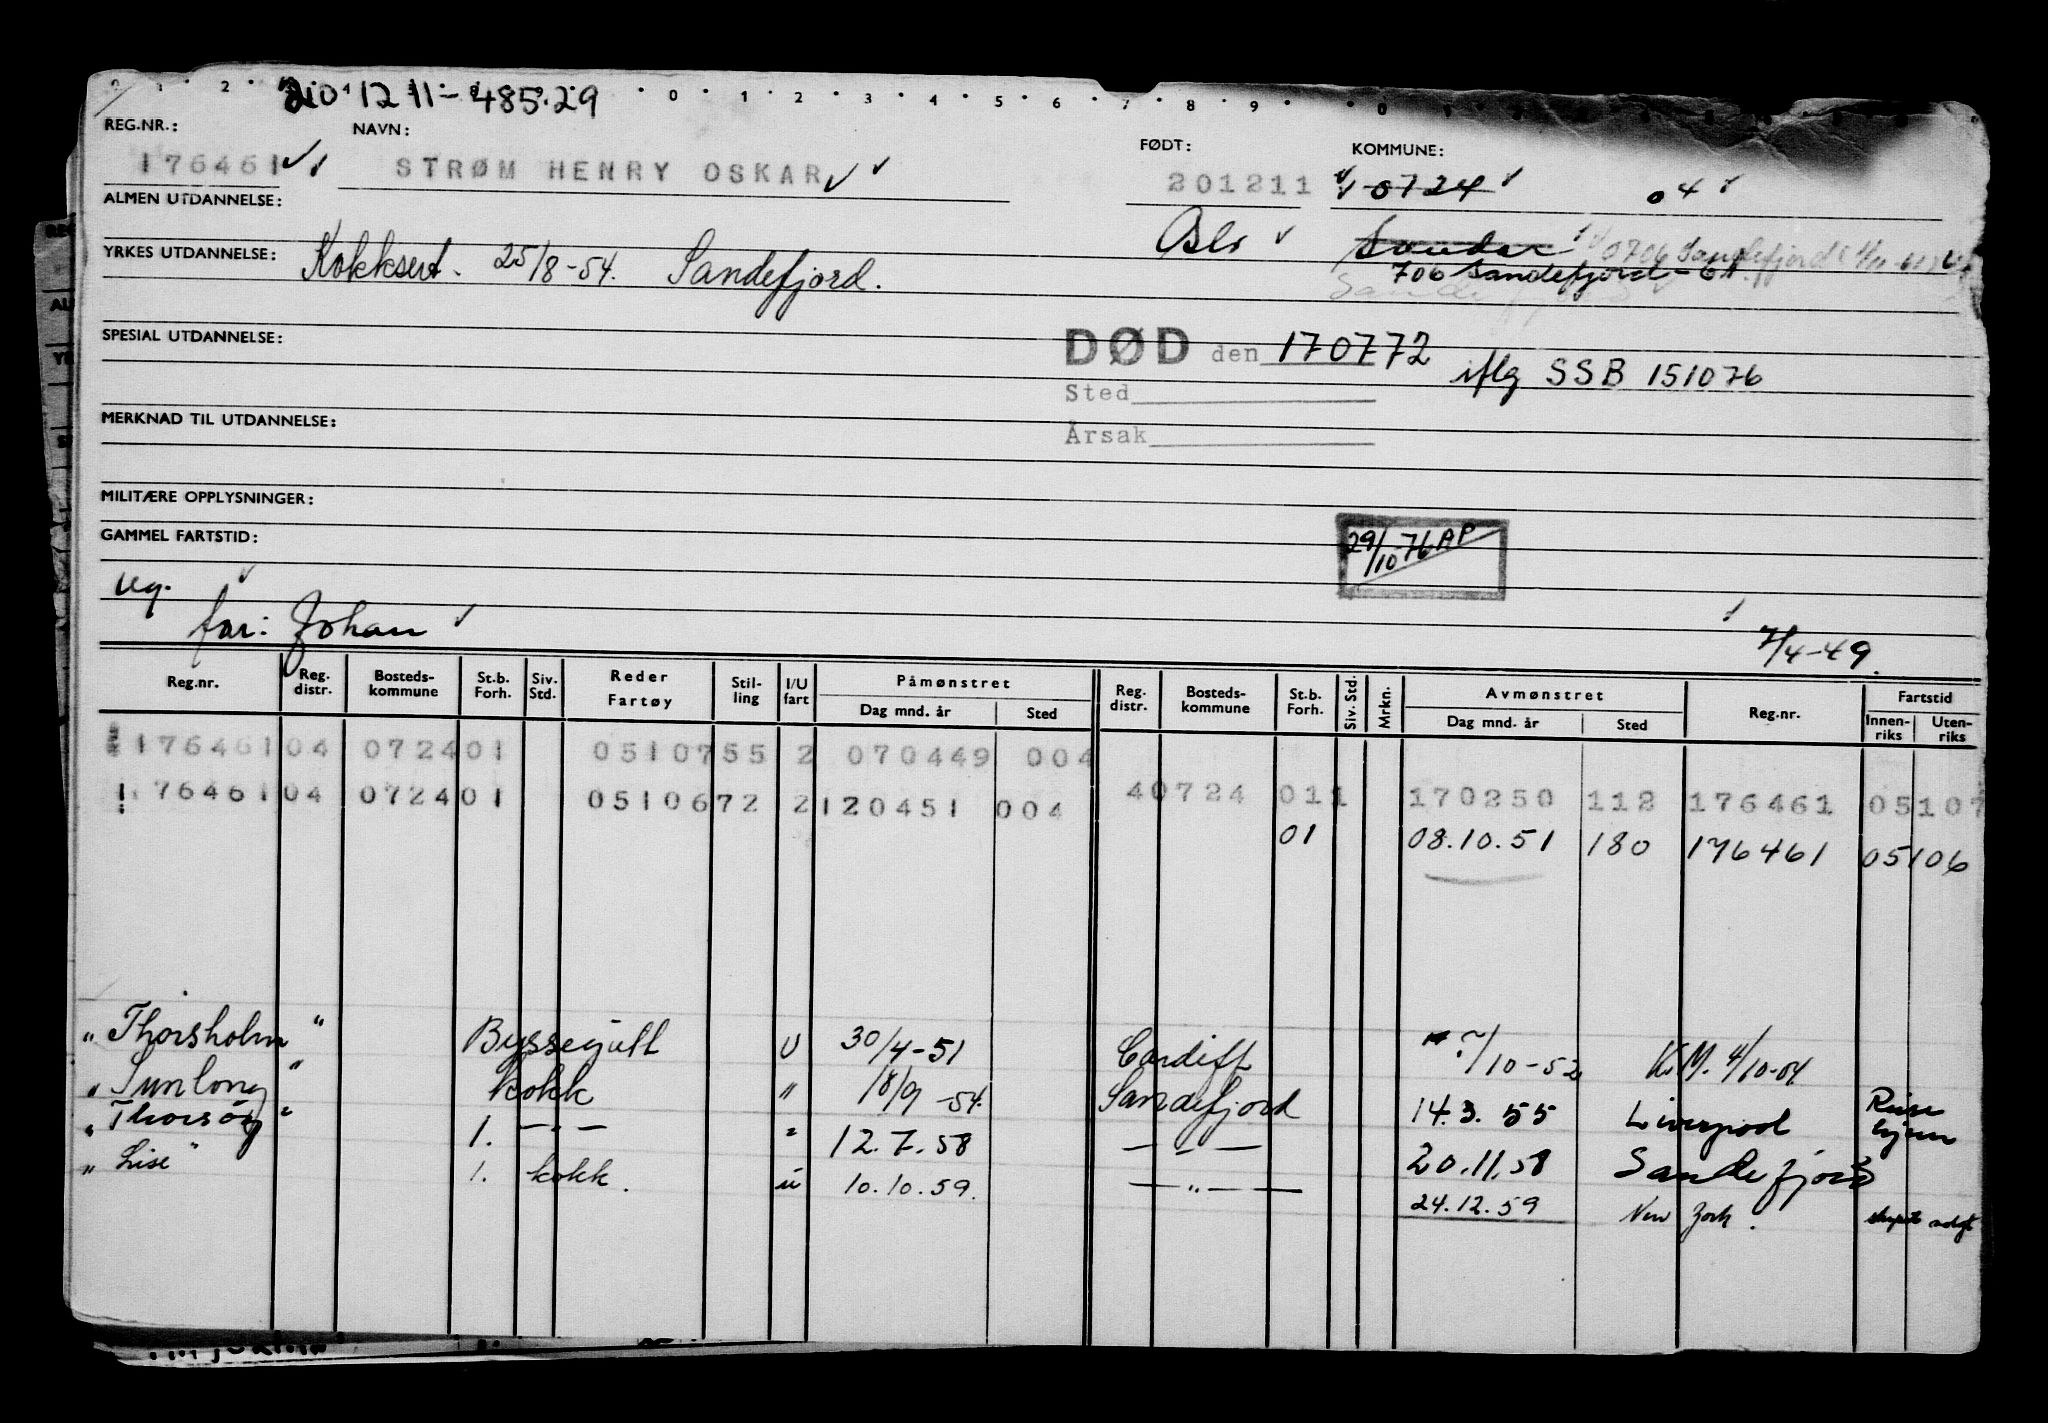 201211-48529
REG.NR.: NAVN: FØDT: KOMMUNE:
176461 STRØM HENRY OSKAR 201211 0724 04
ALMEN UTDANNELSE: Oslo Sandar 0706 Sandefjord
YRKES UTDANNELSE: Kokksert. 25/8-54. Sandefjord. 706 Sandefjord
SPESIAL UTDANNELSE: DØD den 170772 iflg SSB 151076
Sted
MERKNAD TIL UTDANNELSE: Årsak
MILITÆRE OPPLYSNINGER:
GAMMEL FARTSTID: 29/10 76 AP
ug.
far: Johan 7/4-49.
Reg.nr. Reg. distr. Bosteds- kommune St.b. Forh. Siv. Std. Reder Fartøy Stil- ling I/U fart Påmønstret Dag mnd. år Sted Reg. distr. Bosteds- kommune St.b. Forh. Siv. Std. Mrkn. Avmønstret Dag mnd. år Sted Reg.nr. Fartstid Innen- riks Uten- riks
176461 04 0724 01 0510755 2 070449 004 40724 011 170250 112 176461 05107
176461 04 0724 01 0510672 2 120451 004 01 08.10.51 180 176461 05106
" Thorsholm " Byssegutt U 30/4-51 Cardiff /10-52 K.M. 4/10-54
" Sunlong " kokk " 18/9-54. Sandefjord 14.3.55 Liverpool Reise hjem
" Thorsøy " 1. — " — " 12.7.58 — " — 20.11.58 Sandefjord
" Lise " 1. kokk. u 10.10.59. — " — 24.12.59 New York. skipet solgt